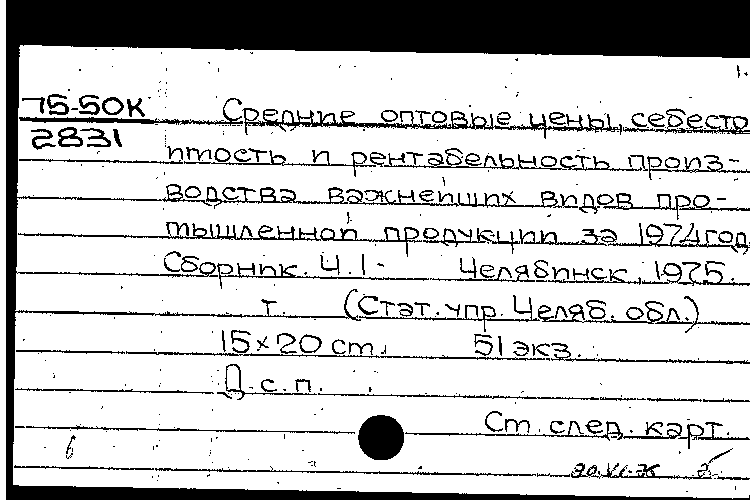 75-50К
2831
Средние оптовые цены, себесто
имость и рентабельность произ-
водства важнейших видов про-
мышленной продукции за 1974 год
Сборник. Ч. 1- Челябинск, 1975.
т. (Стат. упр. Челяб. обл.)
15×20 cm. 51 экз.
Д. с. п.
См. след. карт.
6 20.VI.76